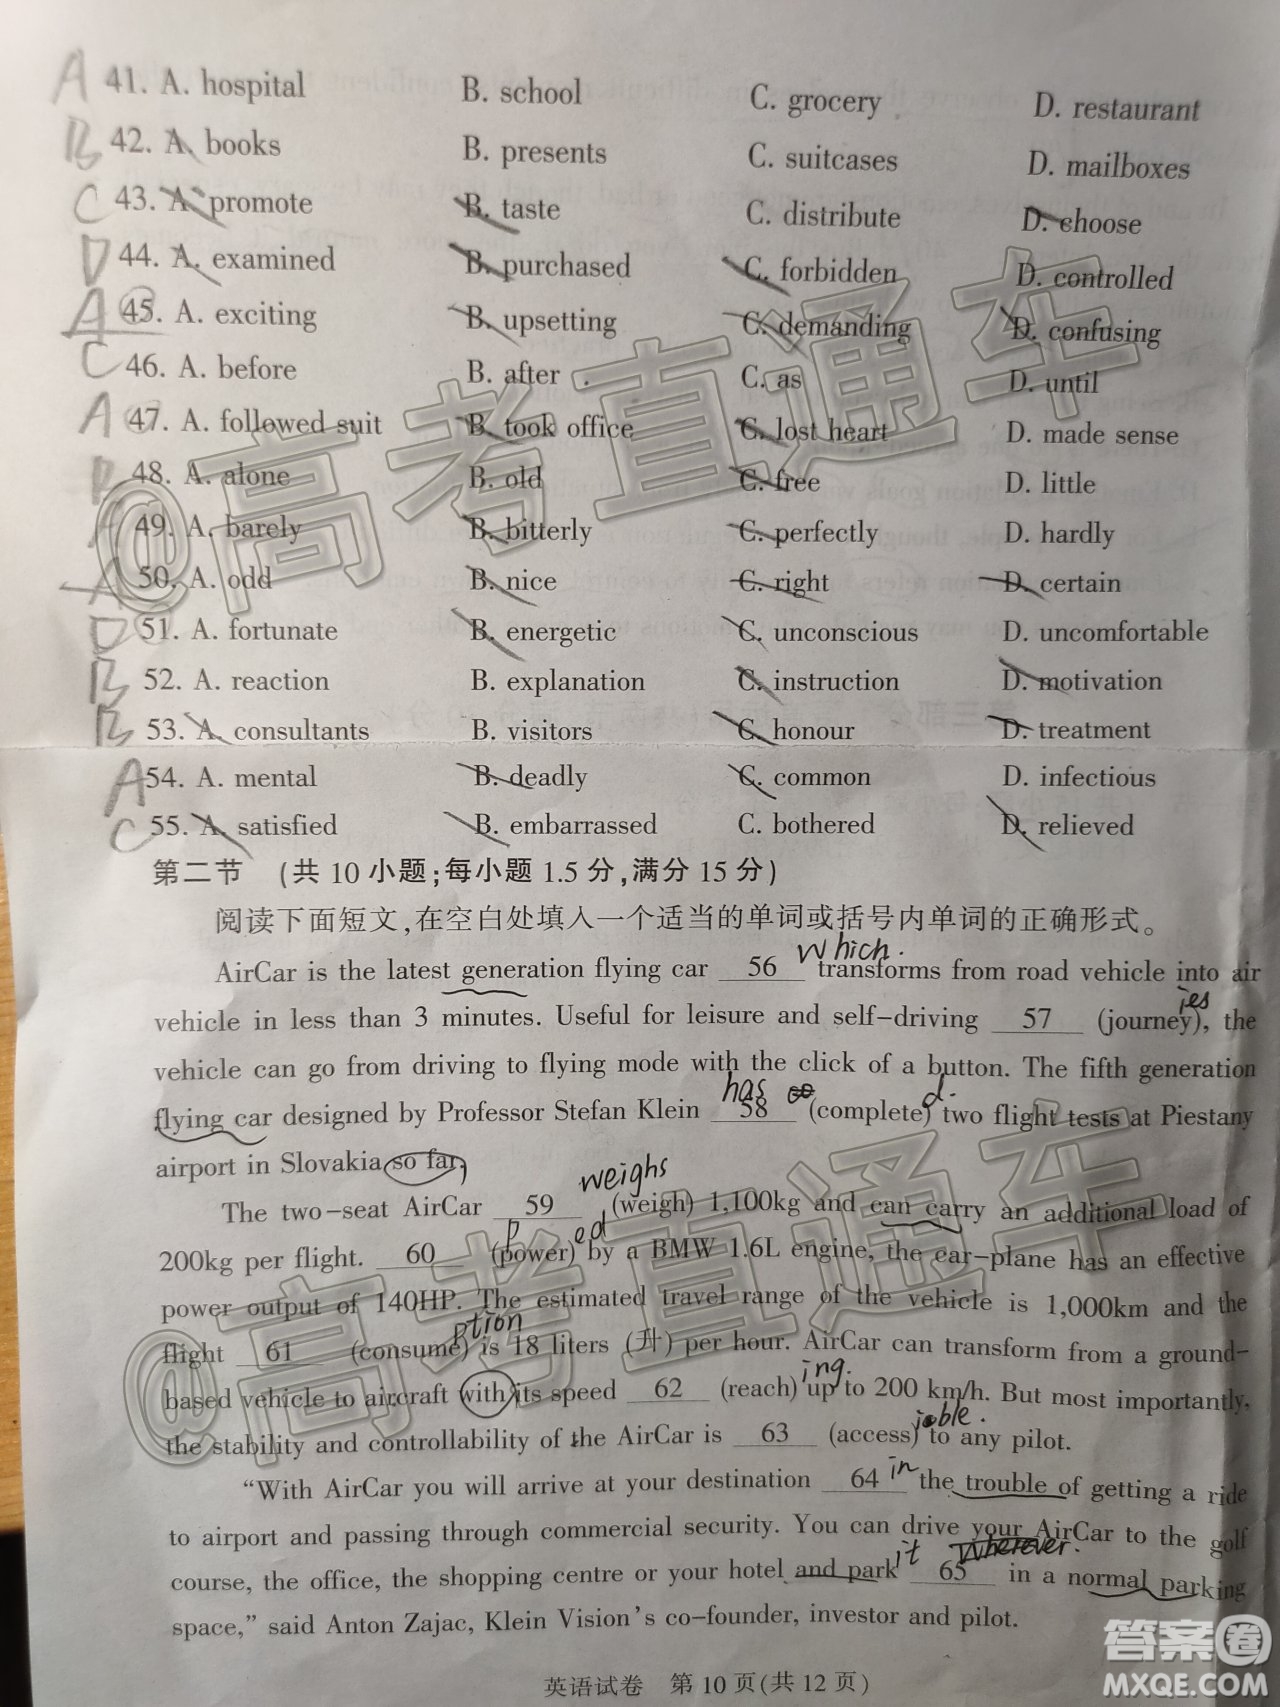 A 41. A. hospital B. school C. grocery D. restaurant
B 42. A. books B. presents C. suitcases D. mailboxes
C 43. A. promote B. taste C. distribute D. choose
D 44. A. examined B. purchased C. forbidden D. controlled
A 45. A. exciting B. upsetting C. demanding D. confusing
C 46. A. before B. after C. as D. until
A 47. A. followed suit B. took office C. lost heart D. made sense
B 48. A. alone B. old C. free D. little
A 49. A. barely B. bitterly C. perfectly D. hardly
A 50. A. odd B. nice C. right D. certain
D 51. A. fortunate B. energetic C. unconscious D. uncomfortable
B 52. A. reaction B. explanation C. instruction D. motivation
B 53. A. consultants B. visitors C. honour D. treatment
A 54. A. mental B. deadly C. common D. infectious
C 55. A. satisfied B. embarrassed C. bothered D. relieved
第二节 (共 10 小题;每小题 1.5 分,满分 15 分)
阅读下面短文,在空白处填入一个适当的单词或括号内单词的正确形式。
which.
AirCar is the latest generation flying car 56 transforms from road vehicle into air
ies
vehicle in less than 3 minutes. Useful for leisure and self-driving 57 (journey), the
vehicle can go from driving to flying mode with the click of a button. The fifth generation
has d.
flying car designed by Professor Stefan Klein 58 (complete) two flight tests at Piestany
airport in Slovakia so far.
weighs
The two-seat AirCar 59 (weigh) 1,100kg and can carry an additional load of
P ed
200kg per flight. 60 (power) by a BMW 1.6L engine, the car-plane has an effective
power output of 140HP. The estimated travel range of the vehicle is 1,000km and the
ption
flight 61 (consume) is 18 liters (升) per hour. AirCar can transform from a ground-
ing.
based vehicle to aircraft with its speed 62 (reach) up to 200 km/h. But most importantly,
ible.
the stability and controllability of the AirCar is 63 (access) to any pilot.
in
"With AirCar you will arrive at your destination 64 the trouble of getting a ride
to airport and passing through commercial security. You can drive your AirCar to the golf
it Wherever.
course, the office, the shopping centre or your hotel and park 65 in a normal parking
space," said Anton Zajac, Klein Vision's co-founder, investor and pilot.
英语试卷 第 10 页(共 12 页)
@高考直通车
@高考直通车
答案圈
MXQE.COM